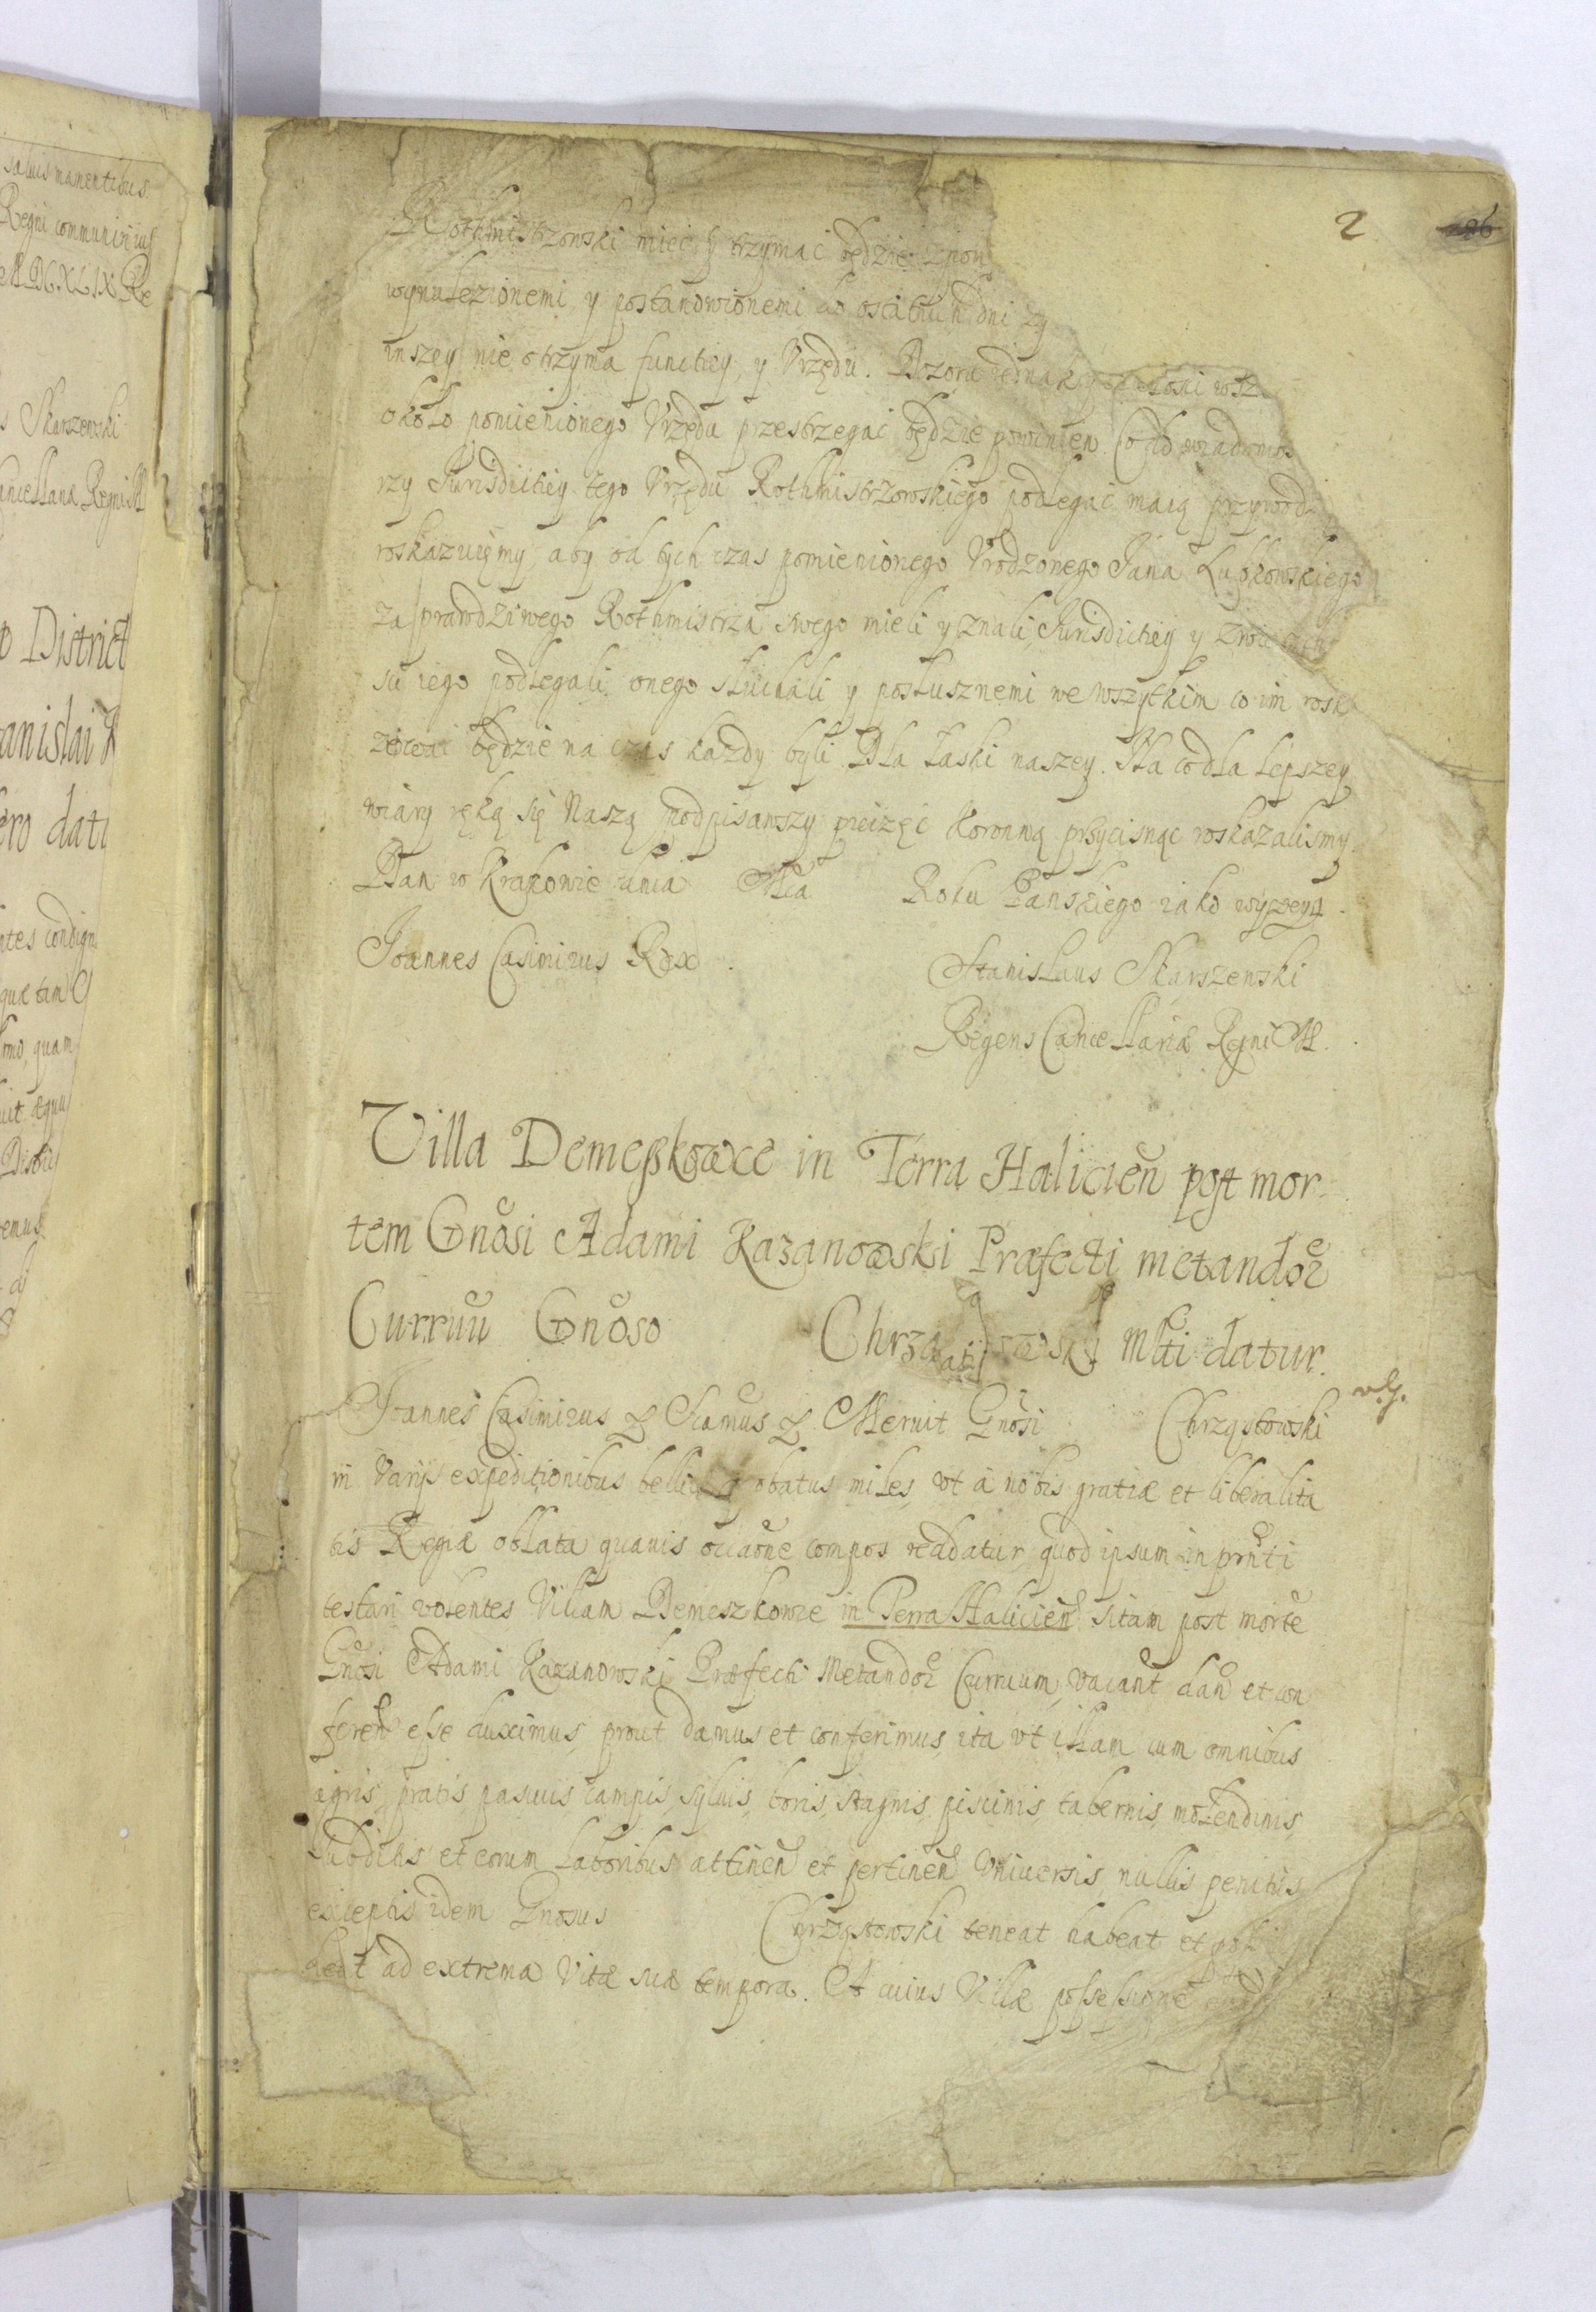 2 26
Rothmistrzowski mieć y trzymać będzie
wynalezionemi y postanowionemi do ostatnich dni ży
inszey nie otrzyma functiey, y Vrzędu. Pozoru iednak
około pomienionego Vrzędu przestrzegać będzie powinien. Co do wiadomos
rzy Jurisdictiey tego Vrzędu Rothmistrzowskiego podlegać maią przywodz
roskazuięmy, aby od tych czas pomienionego Vrodzonego Jana Łubkowskiego
za prawdziwego Rothmistrza swego mieli y znali, Jurisdictiey y
su iego podlegali, onego słuchali y posłusznemi we wszytkim co im rosk
będzie na czas każdy byli. Dla łaski naszey. Na co dla lepszey
wiary ręką się Naszą podpisawszy pieczęć Koronną przycisnąc roskazalismy.
Dan w Krakowie dnia Mca Roku Pańskiego iako wyszey
Joannes Casimirus Rex.
Stanislaus Skarszewski
Regens Cancellariæ Regni
Villa Demeszkowce in Terra Halicień post mor
tem Gnosi Adami Kazanowski Præfecti metandor
Curruu Gnoso Chrzą towski datur.
Joannes Casimirus Meruit Gnosi Chrząstowski
in Varijs expeditionibus bellicis probatus miles, vt à nobis gratiæ et liberalita
tis Regiæ oblata quauis occaone compos reddatur, quod ipsum in prnti
testari volentes Villam Demeszkowce in Terra Halicień sitam post morte
Gnosi Adami Kazanowski Præfecti Metandor Curruum, vacant dan et con
feren esse duximus, prout damus et conferimus, ita vt illam cum omnibus
agris, pratis, pascuis campis, syluis, boris, stagnis, piscinis, tabernis, molendinis,
subditis et eorum laboribus attinen et pertinen Vniuersis, nullis penitus
exceptis idem Gnosus Chrząstowski teneat habeat et
ad extrema Vitæ suæ tempora. A cuius Villæ possessione